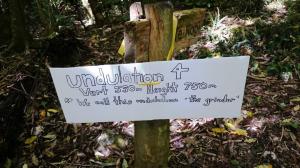 undulation 4
Vert 550m Height 750m
"We call this undulation 'the grinder'